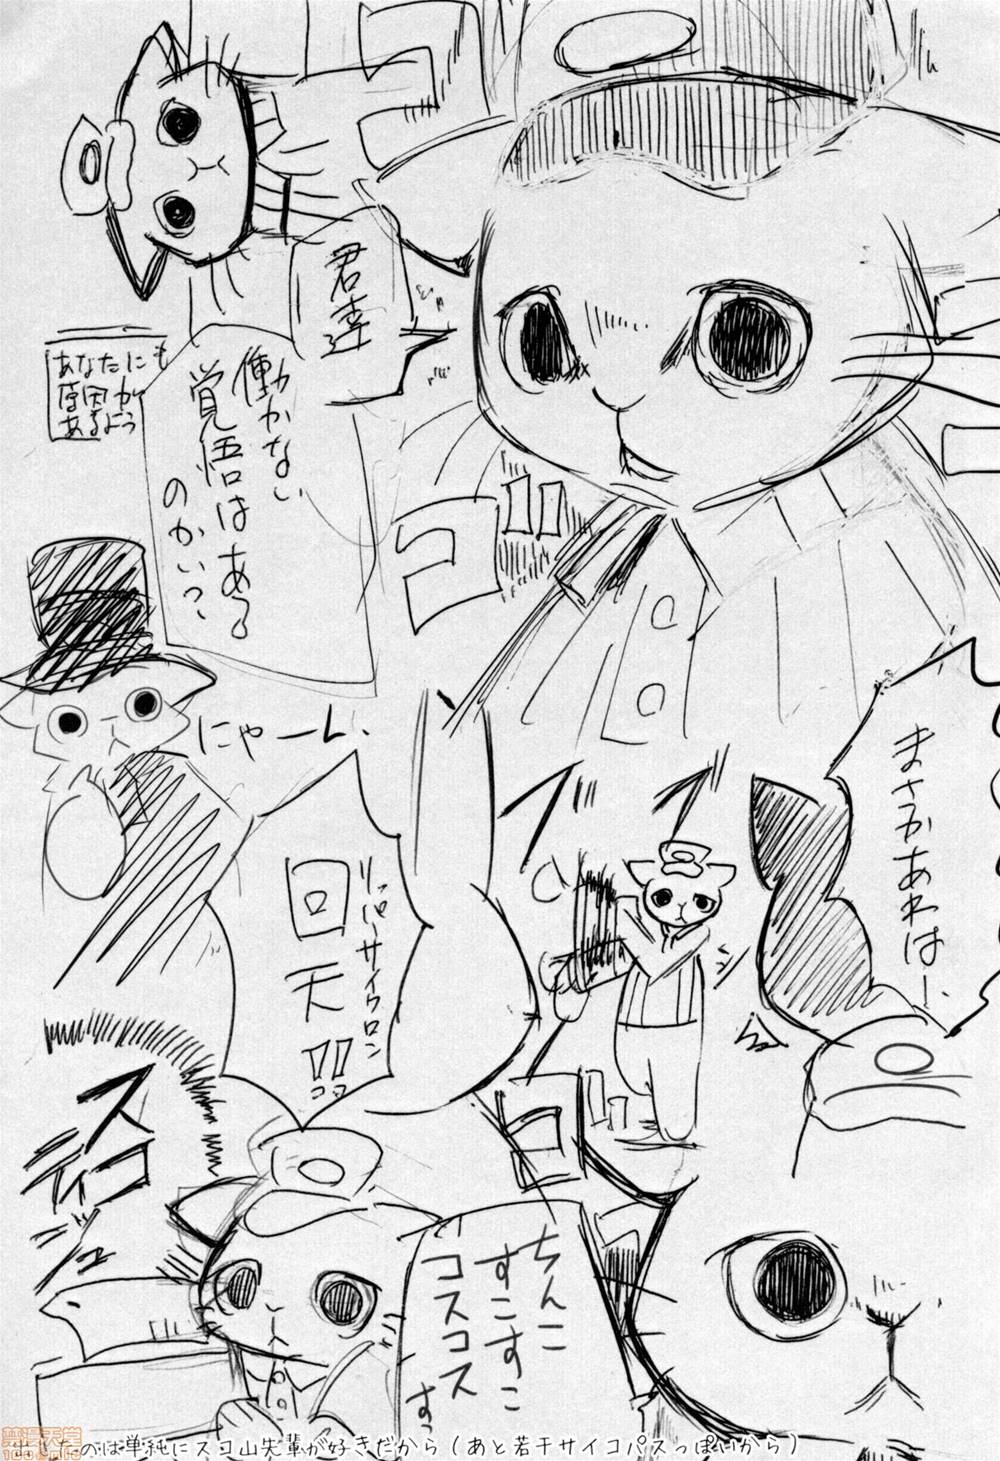 君達
働かない
覚悟はある
のかい?
あなたにも
原因が
あるよう
コ!!
にゃーん
まさかあれは—
リッパーサイクロン
回天!!
ブブ
コ!!
スコ
ティッシュ
ちんこ
すこすこ
コスコス
すっ
出したのは単純にスコ山先輩が好きだから(あと若干サイコパスっぽいから)